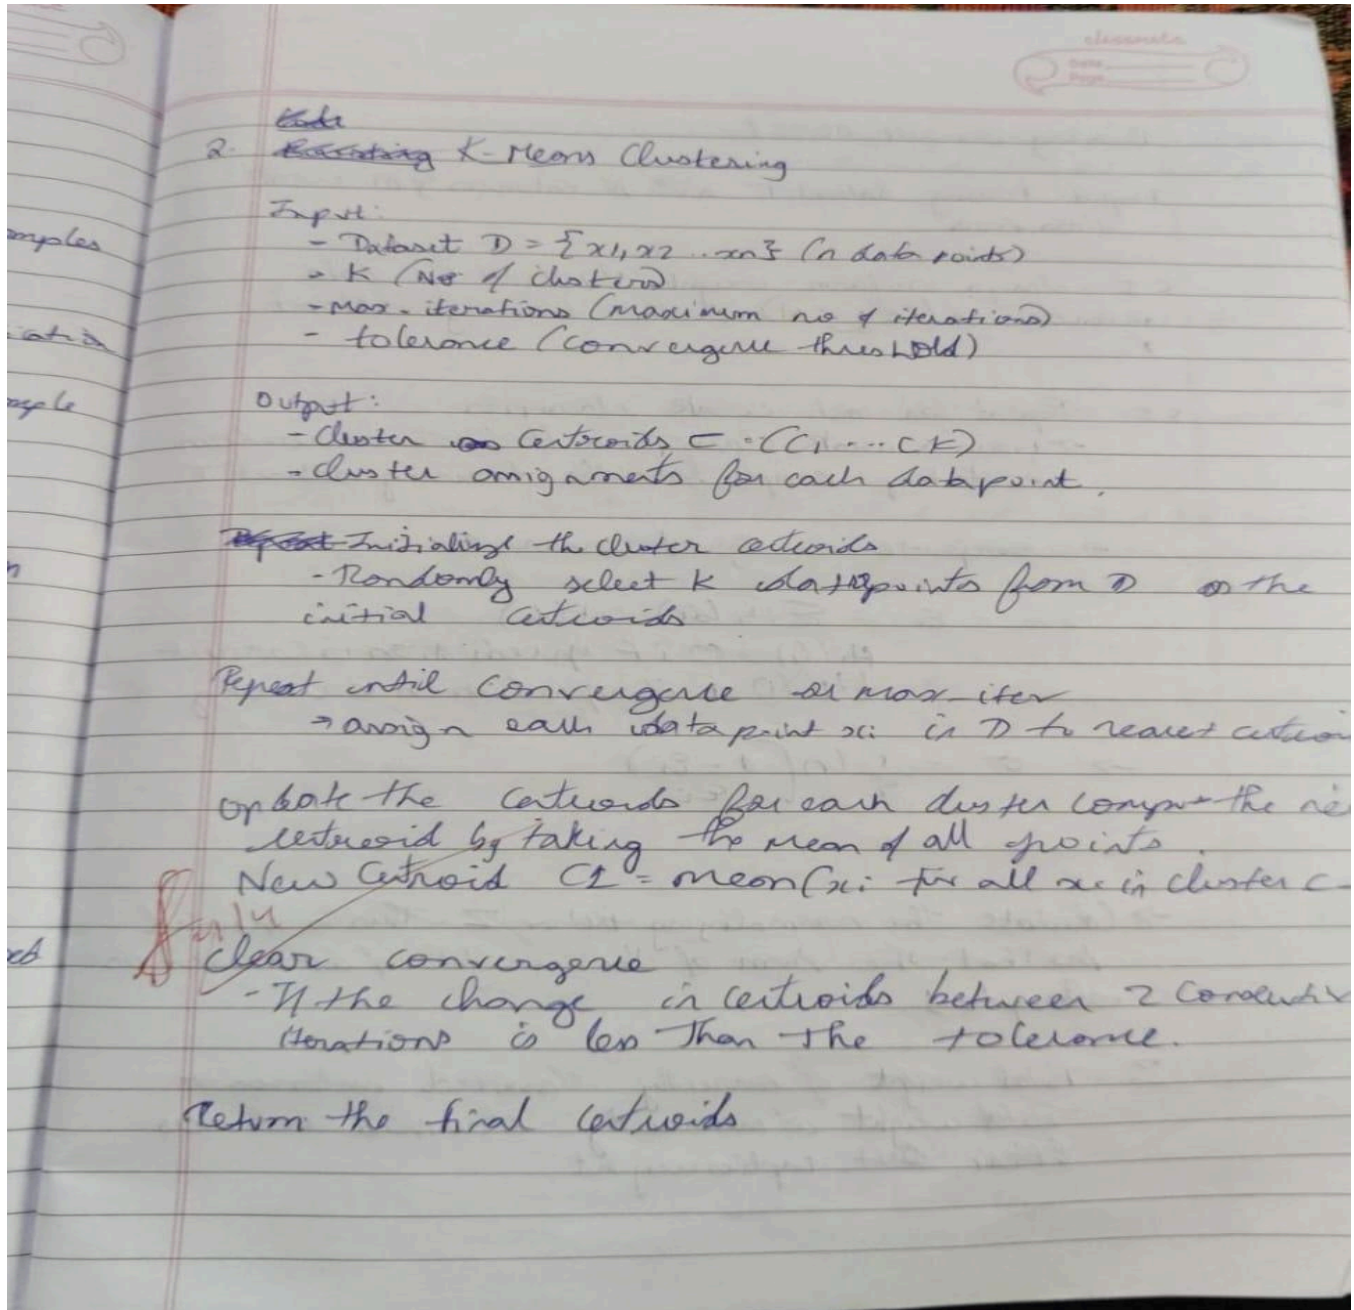 classmate
Date
Page
2. K-Means Clustering
Input:
- Dataset D = {x1, x2 ..xn} (n data points)
- K (No of clusters)
- Max-iterations (maximum no of iterations)
- tolerance (convergence threshold)
Output:
- Cluster Centroids C = (C1 ... CK)
- Cluster assignments for each datapoint.
Initialize the cluster centroids
- Randomly select K datapoints from D as the
initial centroids
Repeat until convergence or max-iter
→ assign each data point xi in D to nearest centroi
Update the centroids for each cluster compute the ne
centroid by taking the mean of all points.
New Centroid C1 = mean(xi for all xi in cluster C
clear convergence
- If the change in centroids between 2 Consecutiv
iterations is less than the tolerance.
Return the final centroids
mples